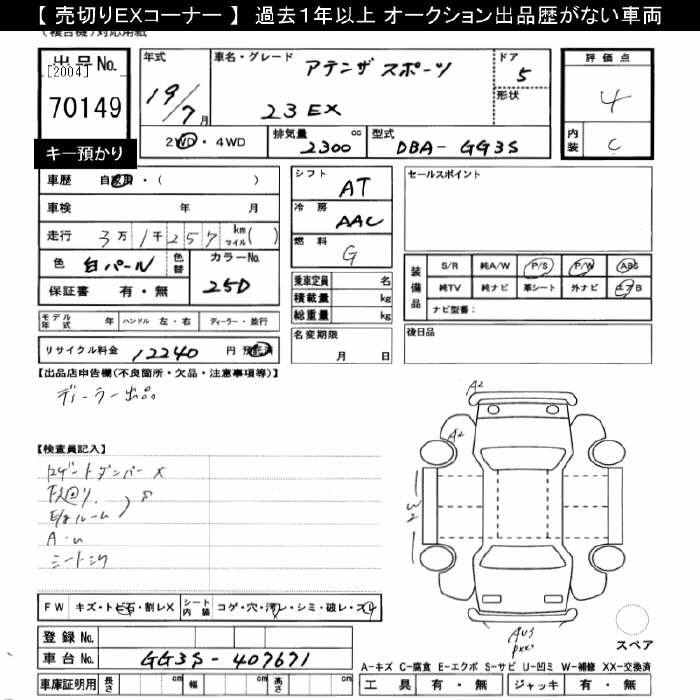 【 売切りEXコーナー 】 過去1年以上 オークション出品歴がない車両
(複合機)対応用紙
出品No.
[2004]
70149
キー預かり
年式
19/7月
車名・グレード
アテンザ スポーツ
23EX
ドア
5
形状
評価点
4
内装
C
2WD・4WD
排気量
2300
cc
型式
DBA-GG3S
車歴 自家用・( )
車検 年 月
走行 3万1千257 km マイル( )
色 白パール 色替
カラーNo.
25D
保証書 有・無
シフト
AT
冷房
AAC
燃料
G
乗車定員 名
積載量 kg
総重量 kg
セールスポイント
装備品
S/R 純A/W P/S P/W ABS
純TV 純ナビ 革シート 外ナビ エアB
ナビ型番:
モデル年式 年 ハンドル 左・右 ディーラー・並行
名変期限
月 日
後日品
リサイクル料金 12240 円 預託済
【出品店申告欄(不良箇所・欠品・注意事項等)】
ディーラー出品
A2
A2
【検査員記入】
ゲートダンパー X
下廻り
ルーム
W2
FW キズ・トビ石・割レX シート内装 コゲ・穴・汚レ・シミ・破レ・スレ
登録No.
車台No.
GG3S-407671
スペア
A-キズ C-腐食 E-エクボ S-サビ U-凹ミ W-補修 XX-交換済
車庫証明用 長さ cm 幅 cm 高さ cm
工具 有・無 ジャッキ 有・無